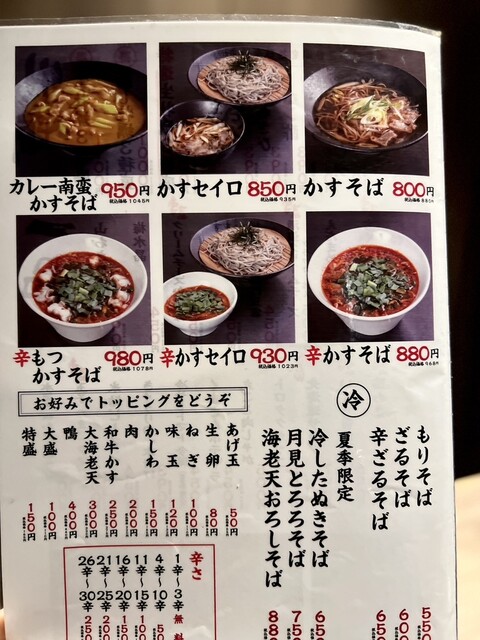 カレー南蛮
かすそば
950円
税込価格 1045円
かすセイロ 850円
税込価格 935円
かすそば 800円
税込価格 880円
辛もつ
かすそば
980円
税込価格 1078円
辛かすセイロ 930円
税込価格 1023円
辛かすそば 880円
税込価格 968円
お好みでトッピングをどうぞ
あげ玉 50円
生卵 80円
ねぎ 100円
味玉 120円
かしわ 150円
肉 200円
和牛かす 250円
大海老天 300円
鴨 400円
大盛 100円
特盛 150円
辛さ
1辛〜3辛 無料
4〜10辛
11〜15辛
16〜20辛
21〜25辛
26〜30辛
冷
もりそば
ざるそば
辛ざるそば
夏季限定
冷したぬきそば
月見とろろそば
海老天おろしそば